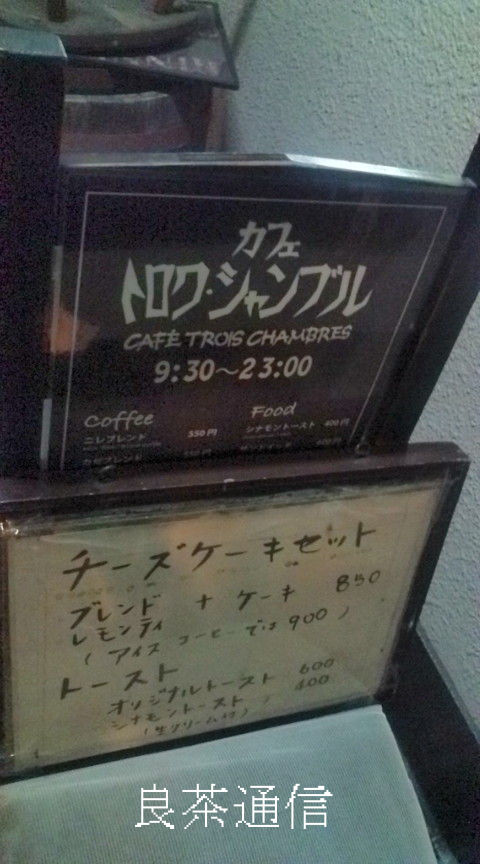 カフェ
トロワ・シャンブル
CAFÉ TROIS CHAMBRES
9:30～23:00
Coffee
ニレブレンド 550円
Food
シナモントースト 400円
チーズケーキセット
ブレンド + ケーキ 850
レモンティ
(アイスコーヒーでは900)
トースト
オリジナルトースト 600
シナモントースト 400
(生クリーム付)
良茶通信